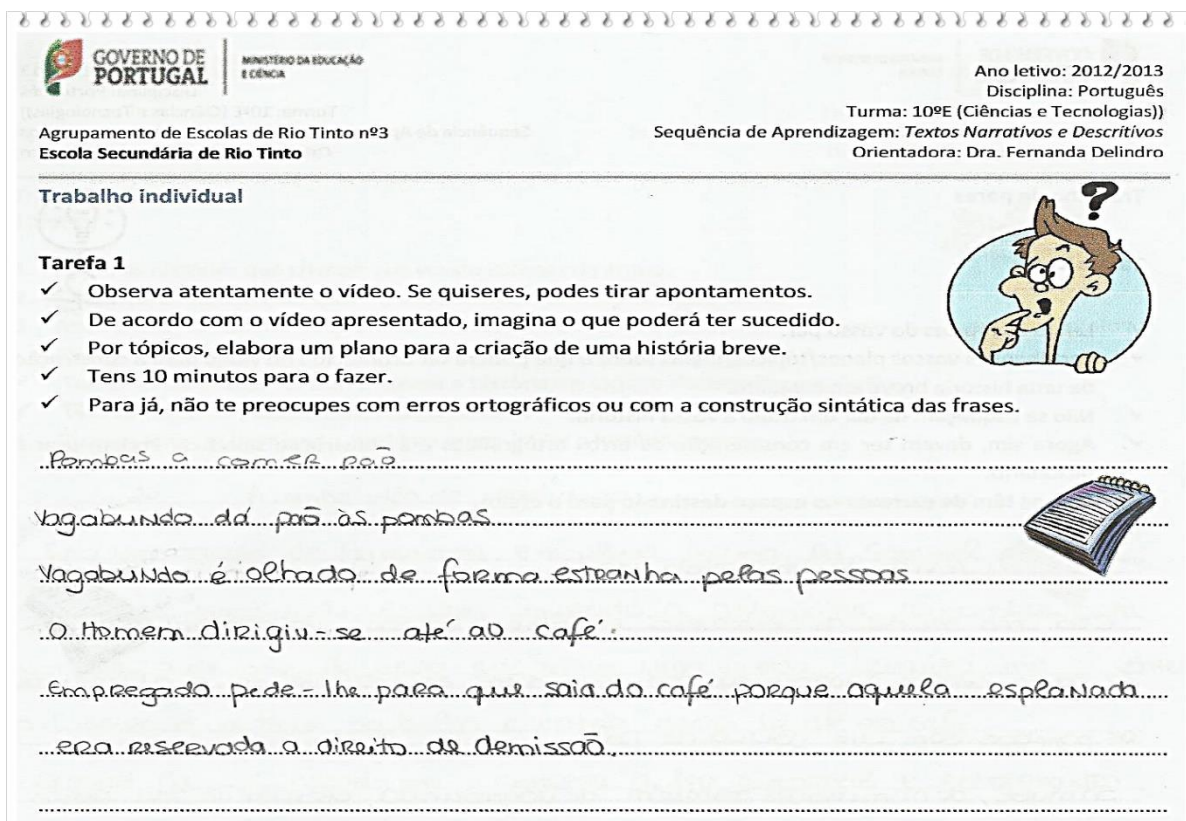 GOVERNO DE
PORTUGAL
MINISTÉRIO DA EDUCAÇÃO
E CIÊNCIA
Ano letivo: 2012/2013
Disciplina: Português
Turma: 10ºE (Ciências e Tecnologias))
Agrupamento de Escolas de Rio Tinto nº3
Sequência de Aprendizagem: Textos Narrativos e Descritivos
Escola Secundária de Rio Tinto
Orientadora: Dra. Fernanda Delindro
Trabalho individual
?
Tarefa 1
✓ Observa atentamente o vídeo. Se quiseres, podes tirar apontamentos.
✓ De acordo com o vídeo apresentado, imagina o que poderá ter sucedido.
✓ Por tópicos, elabora um plano para a criação de uma história breve.
✓ Tens 10 minutos para o fazer.
✓ Para já, não te preocupes com erros ortográficos ou com a construção sintática das frases.
Pombas a comer pão
Vagabundo dá pão às pombas
Vagabundo é olhado de forma estranha pelas pessoas
O Homem dirigiu-se até ao café.
Empregado pede-lhe para que saia do café porque aquela esplanada
era reservada a direito de demissão.